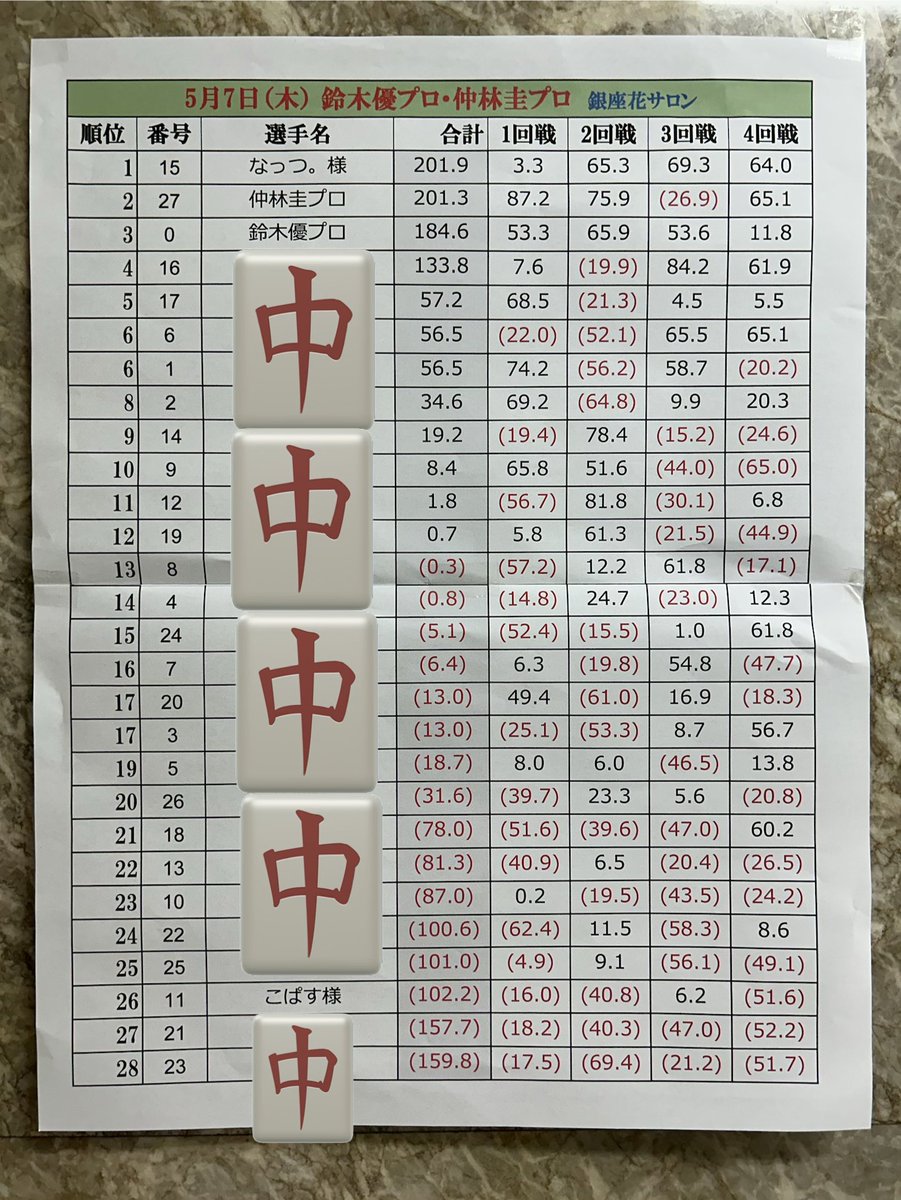 5月7日(木) 鈴木優プロ・仲林圭プロ 銀座花サロン
順位 番号 選手名 合計 1回戦 2回戦 3回戦 4回戦
1 15 なっつ。様 201.9 3.3 65.3 69.3 64.0
2 27 仲林圭プロ 201.3 87.2 75.9 (26.9) 65.1
3 0 鈴木優プロ 184.6 53.3 65.9 53.6 11.8
4 16 133.8 7.6 (19.9) 84.2 61.9
5 17 57.2 68.5 (21.3) 4.5 5.5
6 6 56.5 (22.0) (52.1) 65.5 65.1
6 1 56.5 74.2 (56.2) 58.7 (20.2)
8 2 34.6 69.2 (64.8) 9.9 20.3
9 14 19.2 (19.4) 78.4 (15.2) (24.6)
10 9 8.4 65.8 51.6 (44.0) (65.0)
11 12 1.8 (56.7) 81.8 (30.1) 6.8
12 19 0.7 5.8 61.3 (21.5) (44.9)
13 8 (0.3) (57.2) 12.2 61.8 (17.1)
14 4 (0.8) (14.8) 24.7 (23.0) 12.3
15 24 (5.1) (52.4) (15.5) 1.0 61.8
16 7 (6.4) 6.3 (19.8) 54.8 (47.7)
17 20 (13.0) 49.4 (61.0) 16.9 (18.3)
17 3 (13.0) (25.1) (53.3) 8.7 56.7
19 5 (18.7) 8.0 6.0 (46.5) 13.8
20 26 (31.6) (39.7) 23.3 5.6 (20.8)
21 18 (78.0) (51.6) (39.6) (47.0) 60.2
22 13 (81.3) (40.9) 6.5 (20.4) (26.5)
23 10 (87.0) 0.2 (19.5) (43.5) (24.2)
24 22 (100.6) (62.4) 11.5 (58.3) 8.6
25 25 (101.0) (4.9) 9.1 (56.1) (49.1)
26 11 こぱす様 (102.2) (16.0) (40.8) 6.2 (51.6)
27 21 (157.7) (18.2) (40.3) (47.0) (52.2)
28 23 (159.8) (17.5) (69.4) (21.2) (51.7)
中
中
中
中
中